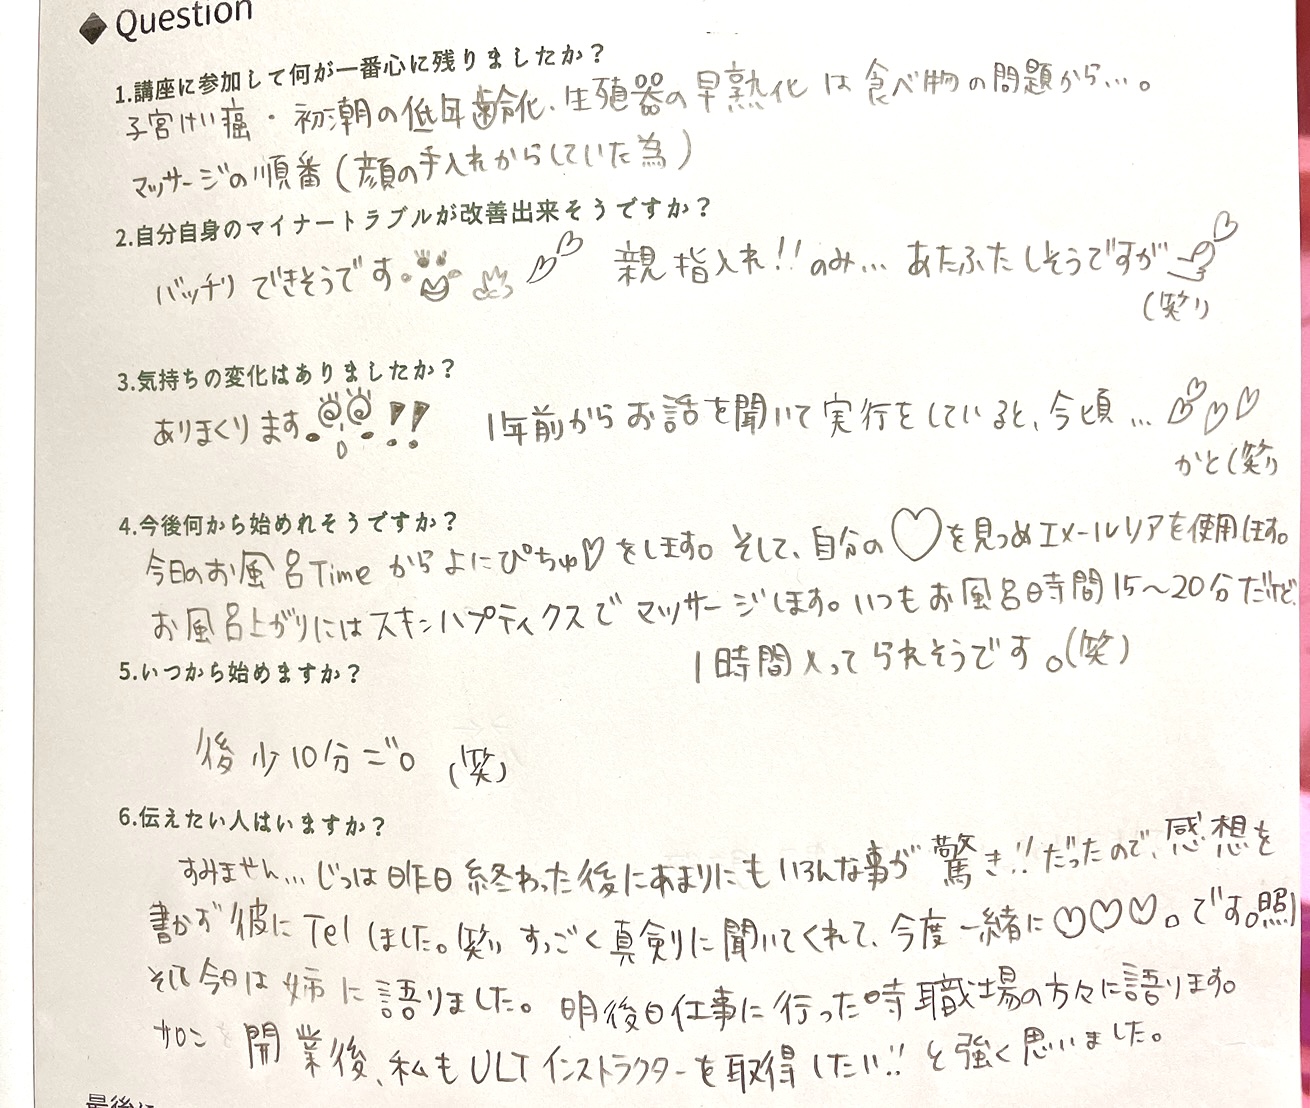 ◆Question
1.講座に参加して何が一番心に残りましたか?
子宮けい癌・初潮の低年齢化、生殖器の早熟化は食べ物の問題から…。
マッサージの順番(顔の手入れからしていた為)
2.自分自身のマイナートラブルが改善出来そうですか?
バッチリできそうです 親指入れ!!のみ… あたふたしそうですが
(笑)
3.気持ちの変化はありましたか?
ありまくります。!! 1年前からお話を聞いて実行をしていると、今頃…♡♡♡
かと(笑)
4.今後何から始めれそうですか?
今日のお風呂Timeからよにぴちゅ♡をします。そして、自分の♡を見つめエメールリアを使用します。
お風呂上がりにはスキンハプティクスでマッサージします。いつもお風呂時間15〜20分だけど、
1時間入ってられそうです。(笑)
5.いつから始めますか?
後少10分ご。(笑)
6.伝えたい人はいますか?
すみません…じつは昨日終わった後にあまりにもいろんな事が驚き!!だったので、感想を
書かず彼にTelしました。(笑)すっごく真剣に聞いてくれて、今度一緒に♡♡♡。です。照)
そして今日は姉に語りました。明後日仕事に行った時職場の方々に語ります。
サロン開業後、私もULTインストラクターを取得したい!!と強く思いました。
最後に